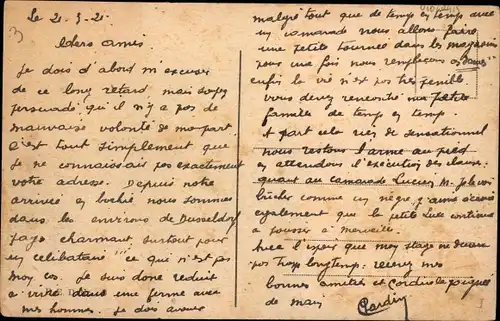 Le 21-3-21
Chers amis
Je dois d'abord m'excuser
de ce long retard, mais soyez
persuadé qu'il n'y a pas de
mauvaise volonté de ma part.
C'est tout simplement que
je ne connaissais pas exactement
votre adresse. Depuis notre
arrivée en bochie nous sommes
dans les environs de Dusseldorf
pays charmant surtout pour
un célibataire ce qui n'est pas
mon cas. Je suis donc réduit
à vivre dans une ferme avec
mes hommes. Je dois avouer
malgré tout que de temps en temps avec
un camarade nous allons faire
une petite tournée dans les magasins
pour une fois nous remplaçons
enfin la vie n'est pas très pénible.
vous devez rencontrer ma petite
famille de temps en temps.
A part cela rien de sensationnel
nous restons l'arme au pied
en attendant l'exécution des clauses.
quant au camarade Lucien M. Je le vois
bûcher comme un nègre, j'aime à croire
également que la petite Luce continue
à pousser à merveille.
Avec l'espoir que mon stage ne durera
pas trop longtemp. recevez mes
bonnes amitiés et cordiales poignées
de main